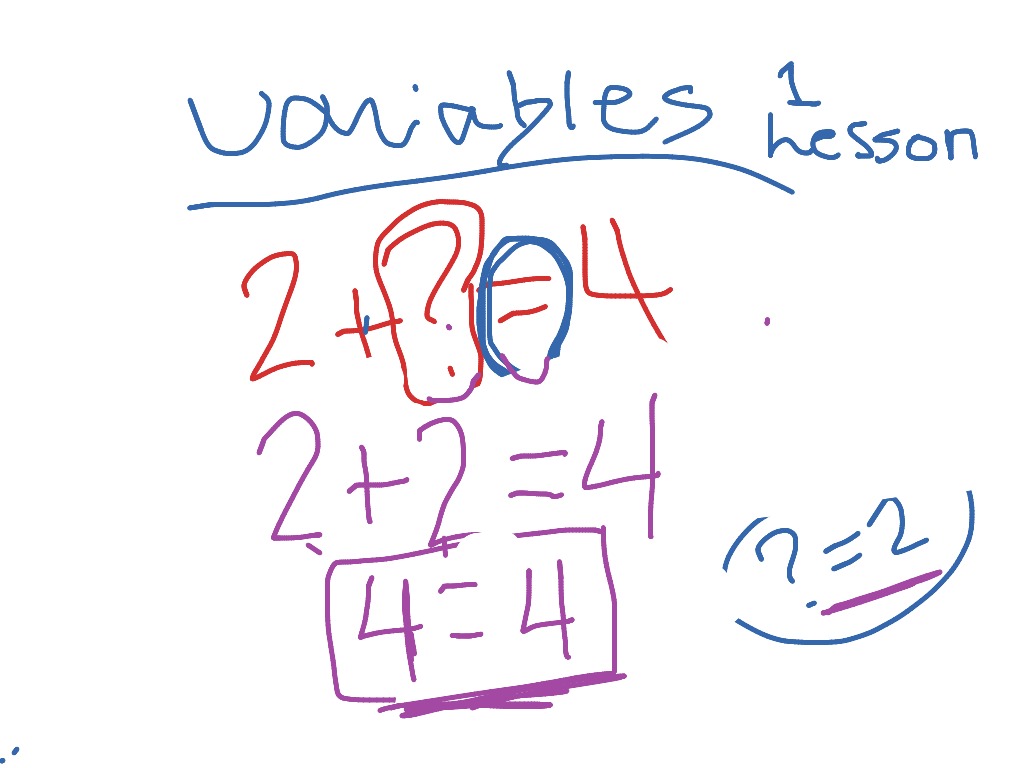 variables
1
Lesson
2+?=4
2+2=4
4=4
?=2